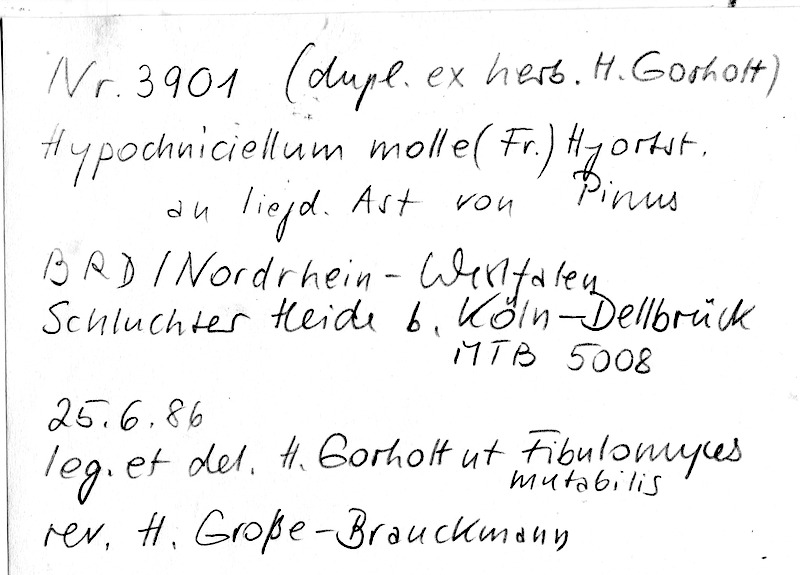 Nr. 3901 (dupl. ex herb. H. Gorhott)
Hypochniciellum molle (Fr.) Hjortst.
an liegd. Ast von Pinus
BRD / Nordrhein-Westfalen
Schluchter Heide b. Köln-Dellbrück
MTB 5008
25.6.86
leg. et det. H. Gorhott ut Fibulomyces
mutabilis
rev. H. Große-Brauckmann